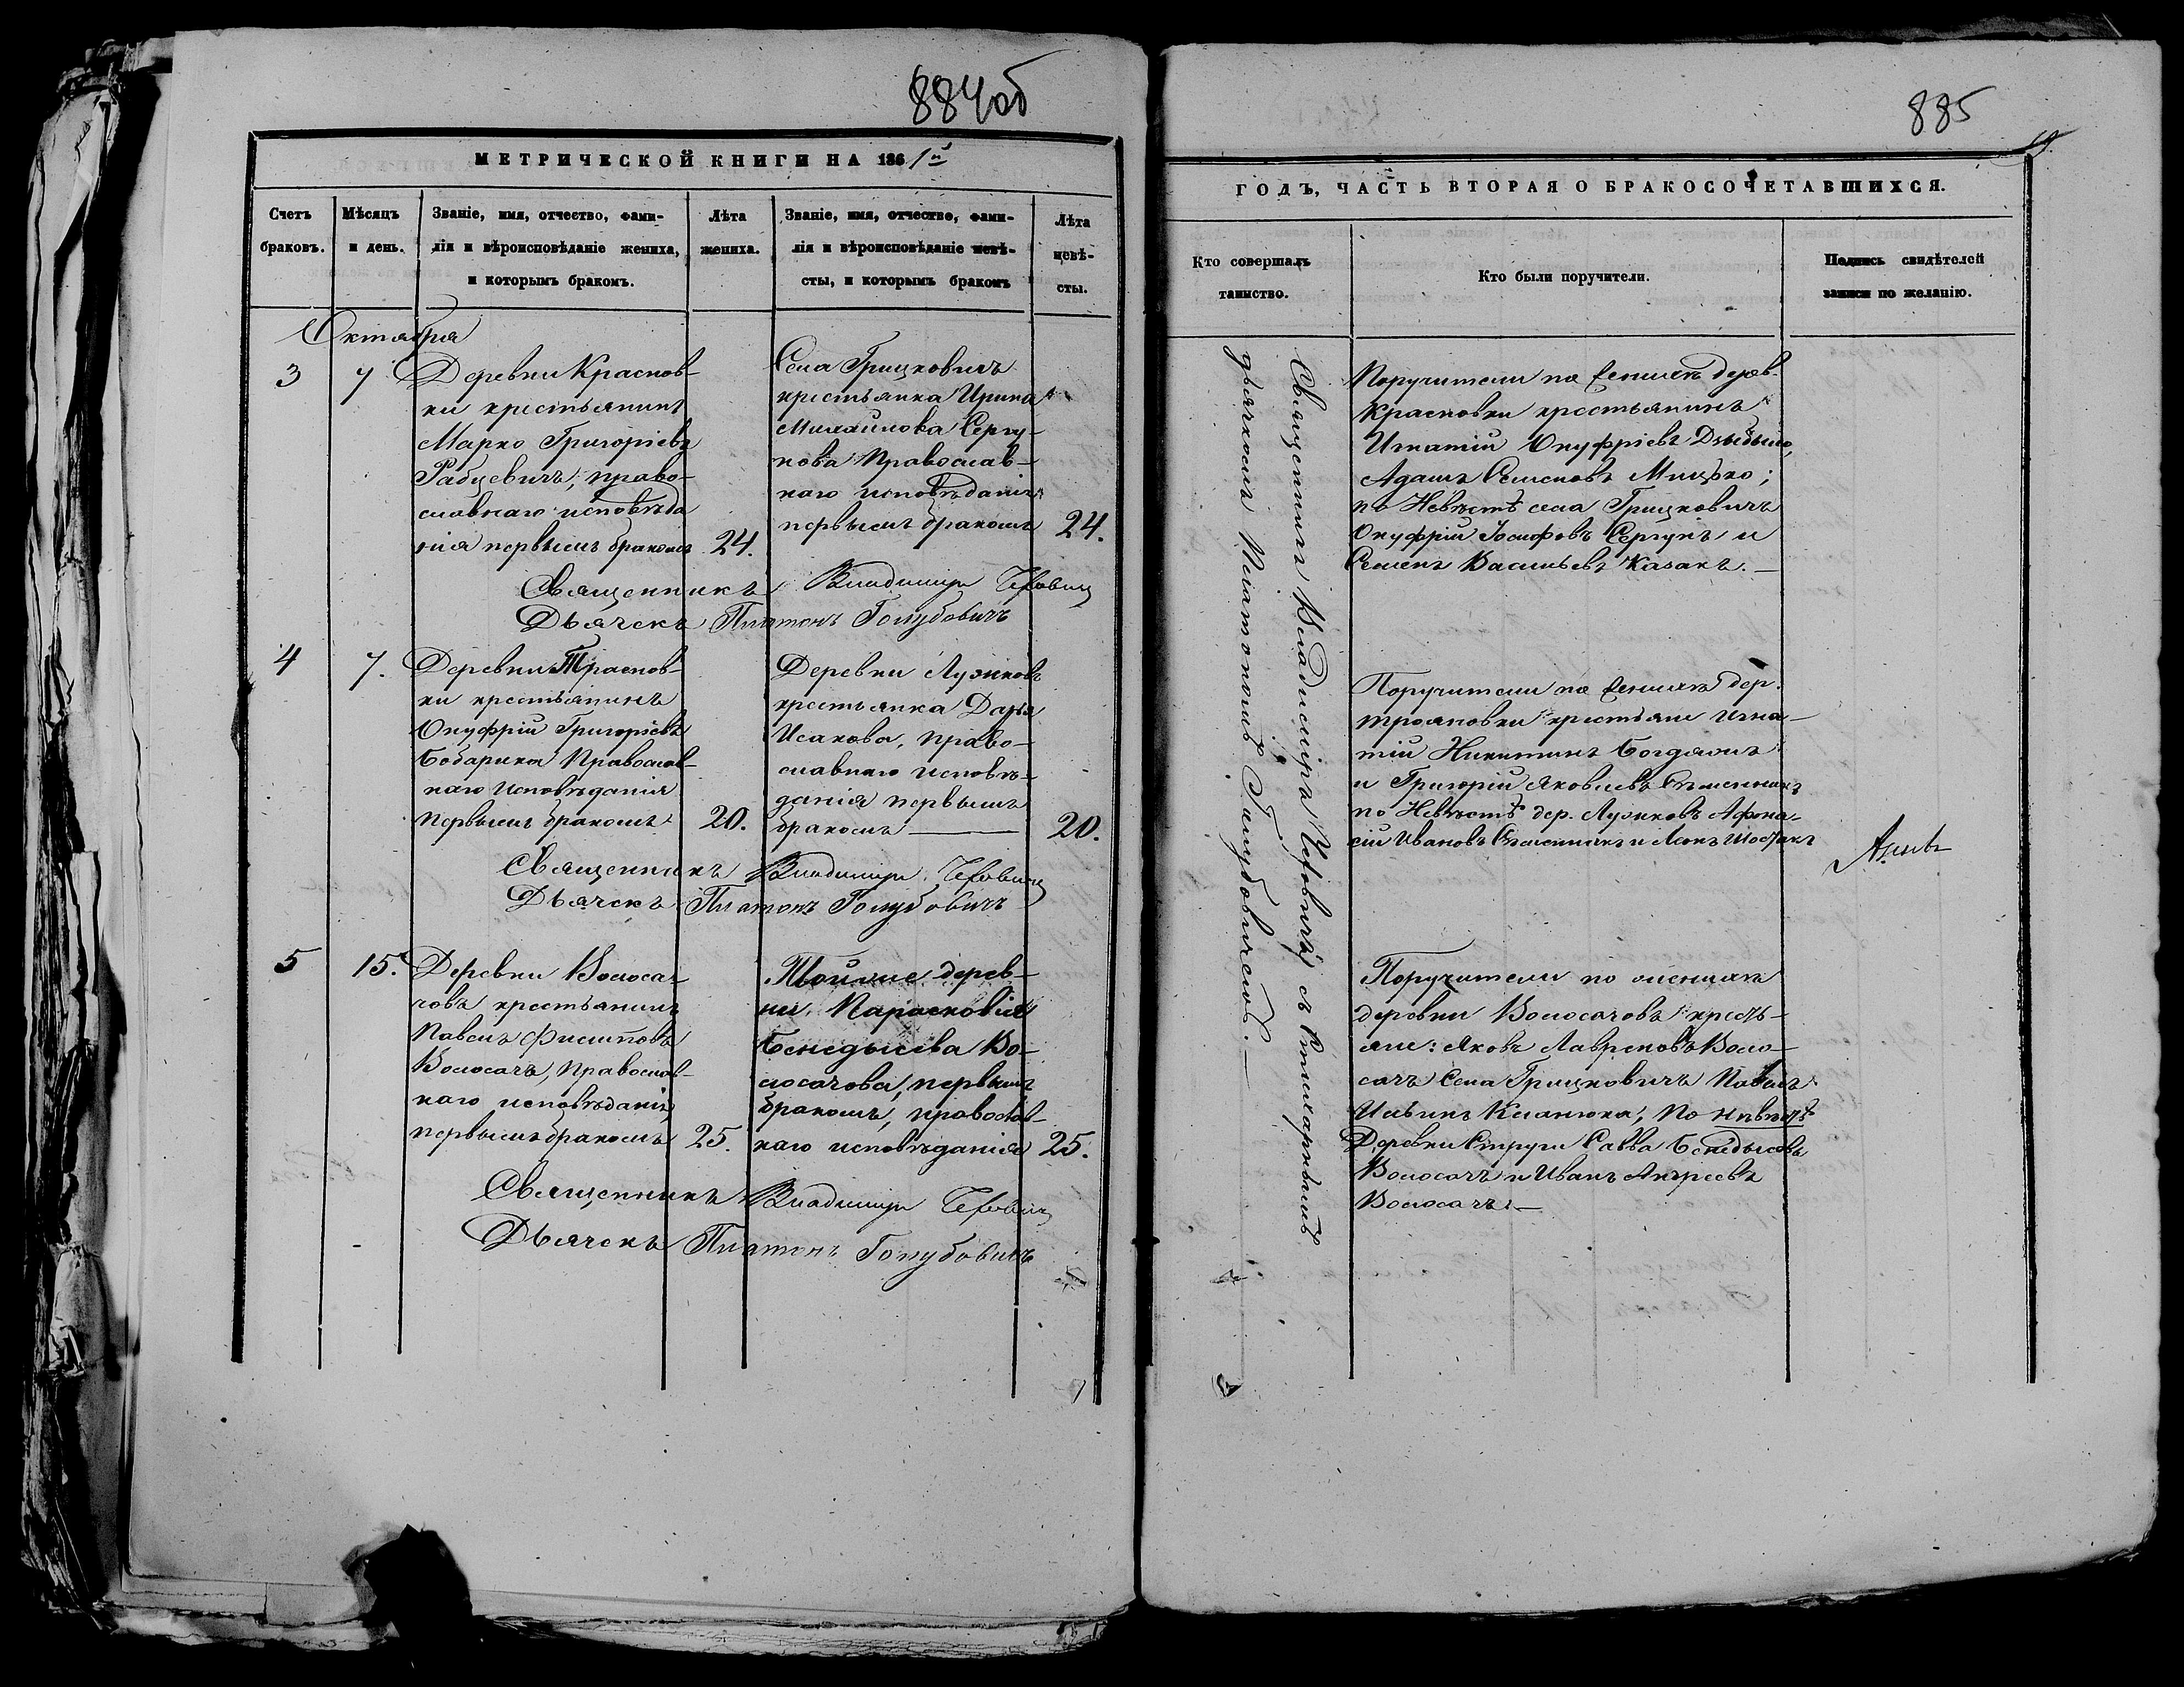 884 об
МЕТРИЧЕСКОЙ КНИГИ НА 1861й
Счетъ браковъ.
Мѣсяцъ и день.
Званіе, имя, отчество, фами-
лія и вѣроисповѣданіе жениха,
и которымъ бракомъ.
Лѣта жениха.
Званіе, имя, отчество, фами-
лія и вѣроисповѣданіе невѣ-
сты, и которымъ бракомъ
Лѣта невѣ-
сты.
Октября
3
7
Деревни Краснов-
ки крестьянинъ
Марко Григоріевъ
Рабцевичъ, право-
славнаго исповѣда
нія первымъ бракомъ
24.
Села Грицковичъ
крестьянка Ирина
Михайлова Сергу-
нова Православ-
наго исповѣданія
первымъ бракомъ
24.
Священникъ Владимиръ
Дьячекъ Платонъ Голубовичъ
4
7.
Деревни
ки крестьянинъ
Онуфрій Григоріевъ
Бобарика Православ-
наго исповѣданія
первымъ бракомъ
20.
Деревни Лужковъ
крестьянка Дарья
Исакова, право-
славнаго исповѣ-
данія первымъ
бракомъ —
20.
Священникъ Владимиръ
Дьячекъ Платонъ Голубовичъ
5
15.
Деревни Волоса-
човъ крестьянинъ
Павелъ Филиповъ
Волосачъ, православ-
наго исповѣданія
первымъ бракомъ
25.
Тойже дерев-
ни, Парасковія
Бенедысева Во-
лосачова, первымъ
бракомъ, православ-
наго исповѣданія
25.
Священникъ Владимиръ
Дьячекъ Платонъ Голубовичъ
885
ГОДЪ, ЧАСТЬ ВТОРАЯ О БРАКОСОЧЕТАВШИХСЯ.
Кто совершалъ
таинство.
Кто были поручители.
Подпись свидѣтелей
записи по желанію.
Священникъ Владиміръ съ
дьячкомъ Платономъ Голубовичемъ. —
Поручители по Жениху дерев.
Красновки крестьянинъ
Игнатій Онуфріевъ
Адамъ Семеновъ
по Невѣстѣ села Грицковичъ
Онуфрій Іосифовъ Сергунъ и
Семенъ Васильевъ Казакъ. —
Поручители по Жениху дер.
Трояновки крестьяне Игна-
тій Никитинъ
и Григорій Яковлевъ
по Невѣстѣ дер. Лужковъ Афона-
сій Ивановъ
Поручители по жениху
деревни Волосачовъ кресть-
яне: Яковъ Лавреновъ Воло-
сачъ Села Грицковичъ Павелъ
Ильинъ Климюка, По невѣстѣ
Деревни Струги Савва Бенедысовъ
Волосачъ и Иванъ Андреевъ
Волосачъ. —